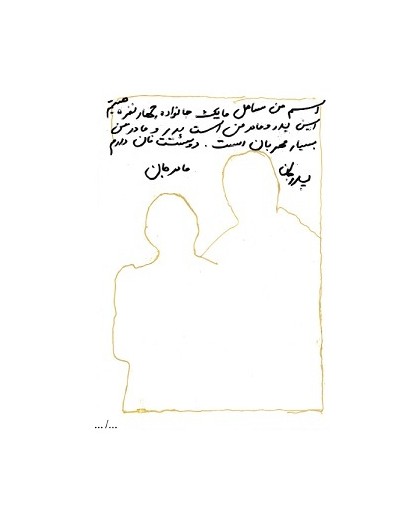 اسم من ساحل ما یک خانواده چهار نفره هستیم
این پدر و مادر من است پدر و مادر من
بسیار مهربان است. دوستت تان دارم
پدر جان مادر جان
.../...